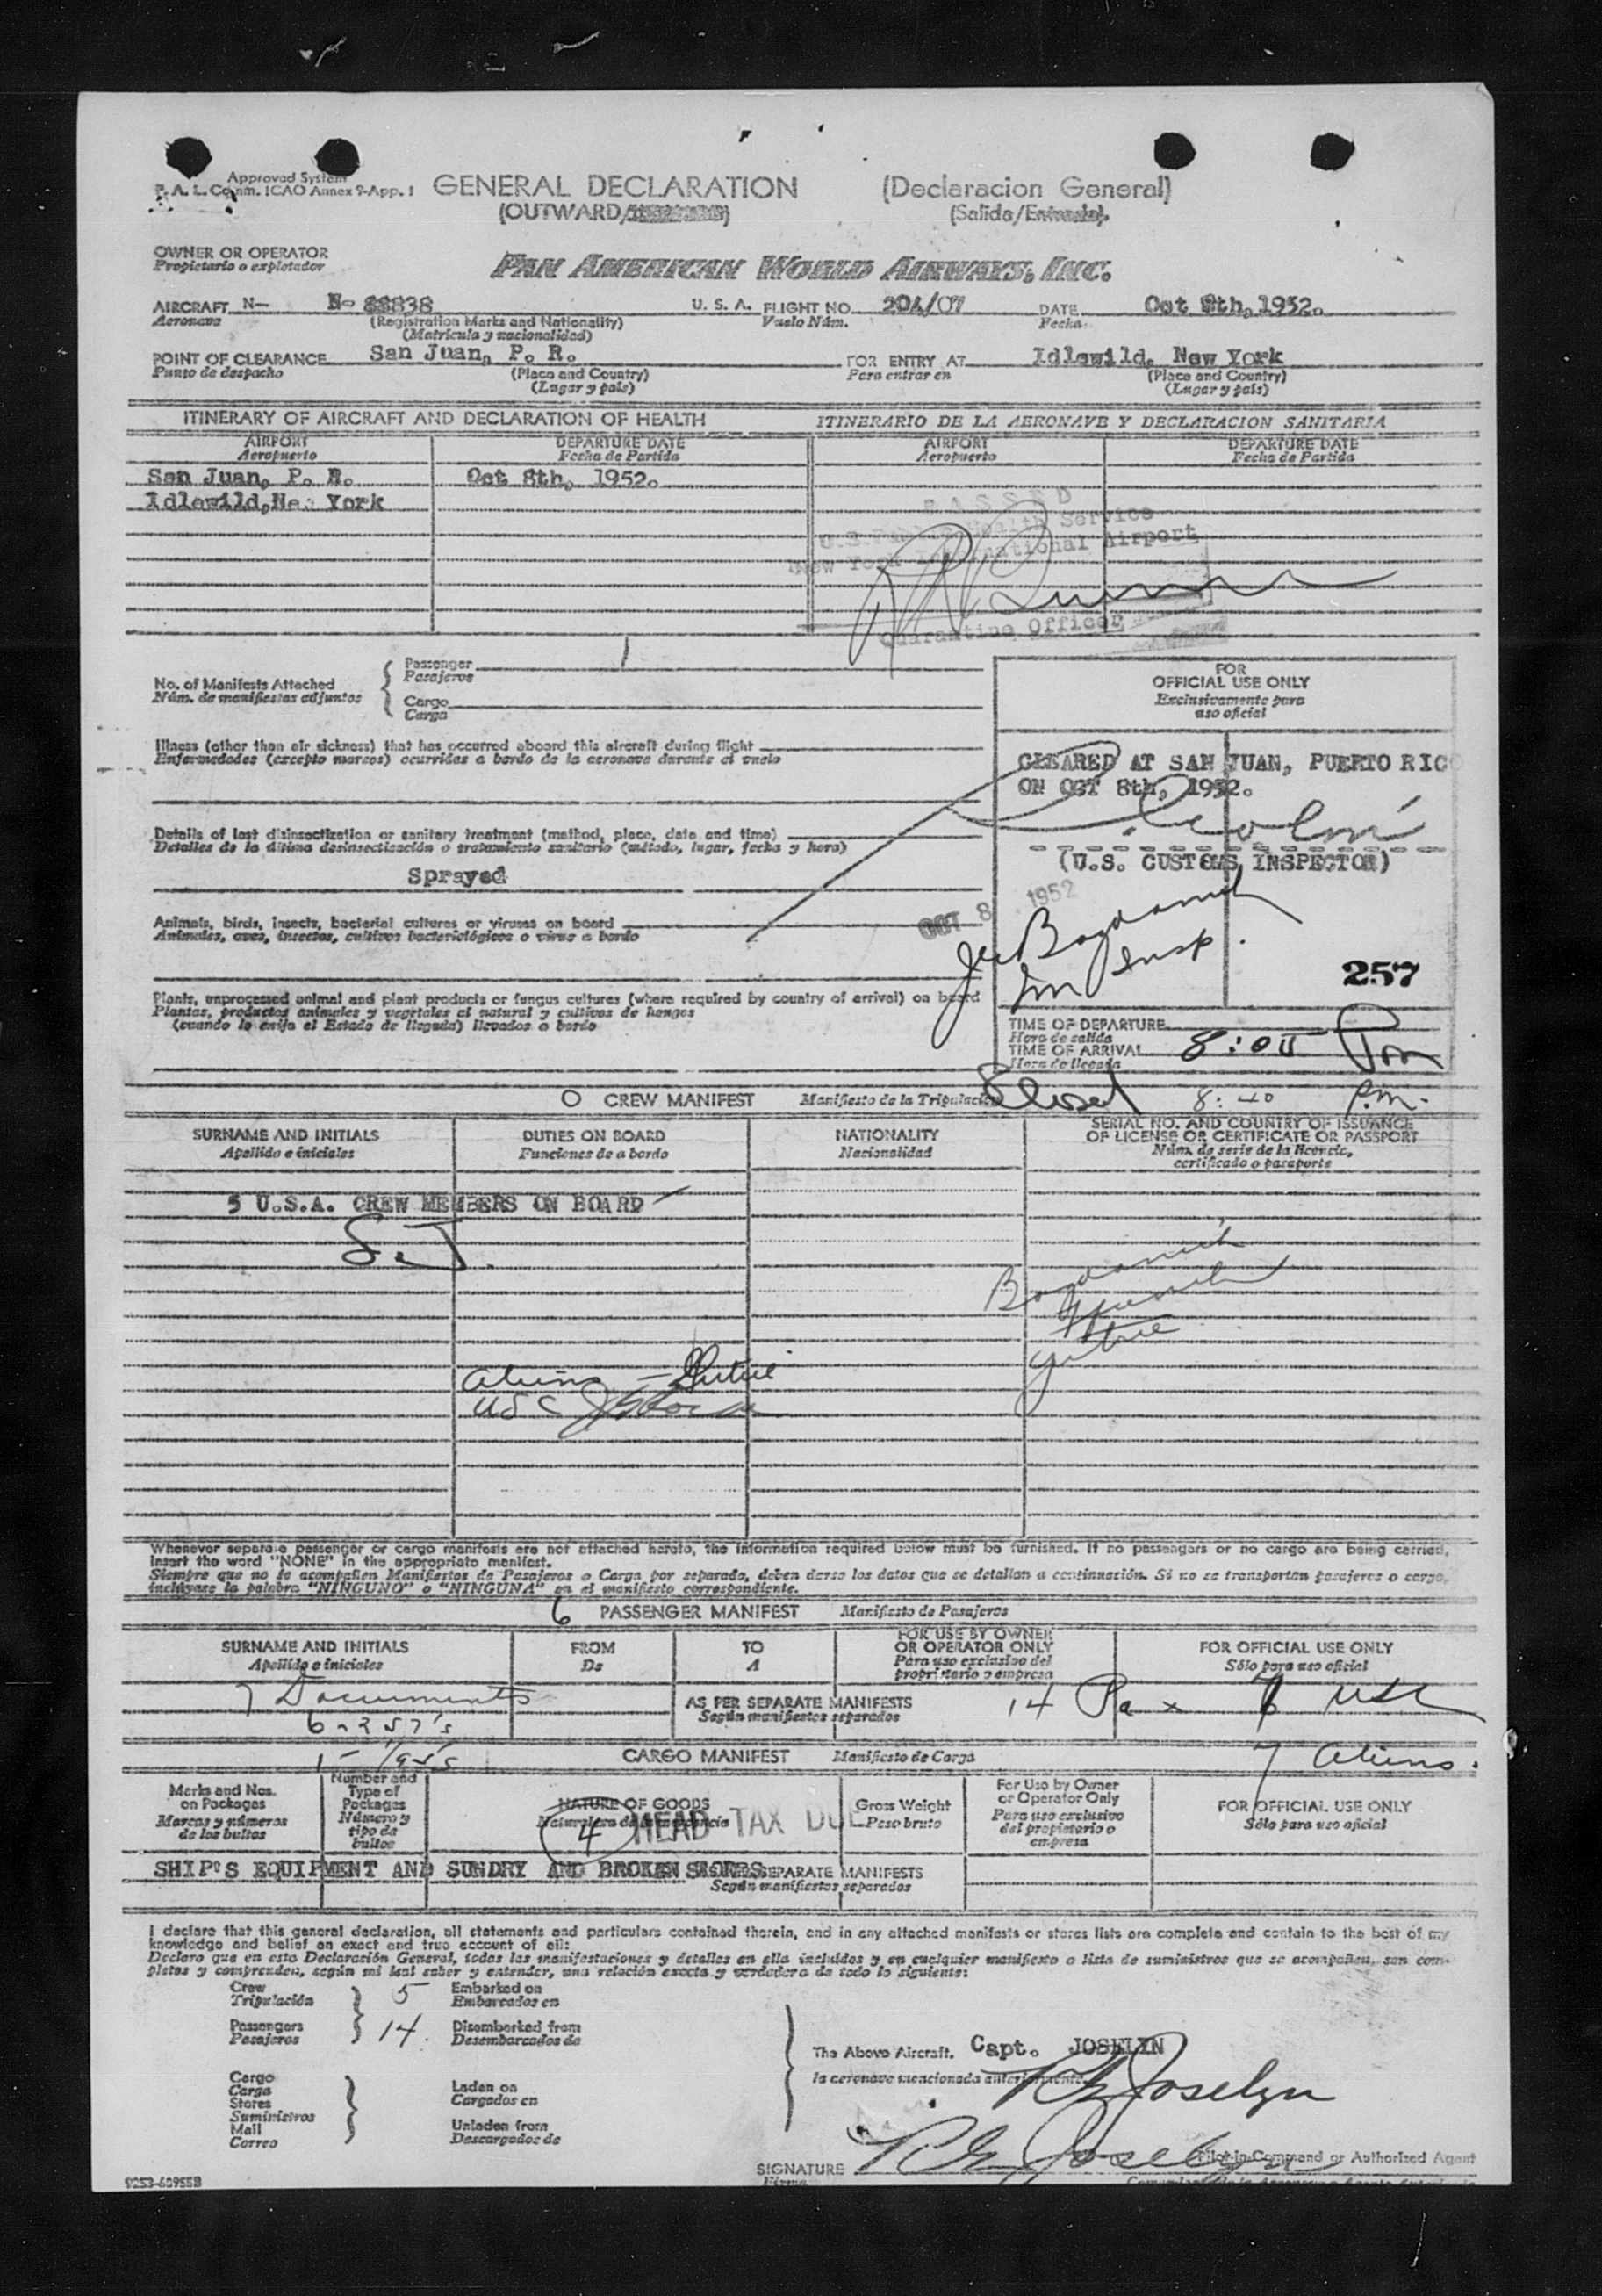 Approved System
P. A. L. Comm. ICAO Annex 9-App. 1
GENERAL DECLARATION (Declaracion General)
(OUTWARD/ (Salida/Entrada).
OWNER OR OPERATOR
Propietario o explotador
PAN AMERICAN WORLD AIRWAYS, INC.
AIRCRAFT N- N- 88838 U. S. A. FLIGHT NO. 204/07 DATE Oct 8th, 1952.
Aeronave (Registration Marks and Nationality) Vuelo Núm. Fecha
(Matrícula y nacionalidad)
POINT OF CLEARANCE San Juan, P. R. FOR ENTRY AT Idlewild, New York
Punto de despacho (Place and Country) Para entrar en (Place and Country)
(Lugar y país) (Lugar y país)
ITINERARY OF AIRCRAFT AND DECLARATION OF HEALTH ITINERARIO DE LA AERONAVE Y DECLARACION SANITARIA
AIRPORT DEPARTURE DATE AIRPORT DEPARTURE DATE
Aeropuerto Fecha de Partida Aeropuerto Fecha de Partida
San Juan, P. R. Oct 8th, 1952.
Idlewild, New York
PASSED
U.S. Public Health Service
New York International Airport
Quarantine Officer
No. of Manifests Attached
Núm. de manifiestos adjuntos
Passenger 1
Pasajeros
Cargo
Carga
FOR
OFFICIAL USE ONLY
Exclusivamente para
uso oficial
Illness (other than air sickness) that has occurred aboard this aircraft during flight
Enfermedades (excepto mareos) ocurridas a bordo de la aeronave durante el vuelo
CLEARED AT SAN JUAN, PUERTO RICO
ON OCT 8th, 1952.
(U.S. CUSTOMS INSPECTOR)
Details of last disinsectization or sanitary treatment (method, place, date and time)
Detalles de la última desinsectización o tratamiento sanitario (método, lugar, fecha y hora)
Sprayed
OCT 8 1952
Animals, birds, insects, bacterial cultures or viruses on board
Animales, aves, insectos, cultivos bacteriológicos o virus a bordo
Bogdanich
Im Insp.
257
Plants, unprocessed animal and plant products or fungus cultures (where required by country of arrival) on board
Plantas, productos animales y vegetales al natural y cultivos de hongos
(cuando lo exija el Estado de llegada) llevados a bordo
TIME OF DEPARTURE
Hora de salida
TIME OF ARRIVAL 8:05 Pm
Hora de llegada
0 CREW MANIFEST Manifiesto de la Tripulación Closed 8:40 P.m.
SURNAME AND INITIALS DUTIES ON BOARD NATIONALITY SERIAL NO. AND COUNTRY OF ISSUANCE
OF LICENSE OR CERTIFICATE OR PASSPORT
Apellido e iniciales Funciones de a bordo Nacionalidad Núm. de serie de la licencia,
certificado o pasaporte
5 U.S.A. CREW MEMBERS ON BOARD
S.J.
Bogdanich
Guthrie
Aliens - Guthrie
USC
Whenever separate passenger or cargo manifests are not attached hereto, the information required below must be furnished. If no passengers or no cargo are being carried,
insert the word "NONE" in the appropriate manifest.
Siempre que no se acompañen Manifiestos de Pasajeros o Carga por separado, deben darse los datos que se detallan a continuación. Si no se transportan pasajeros o carga,
inclúyase la palabra "NINGUNO" o "NINGUNA" en el manifiesto correspondiente.
6 PASSENGER MANIFEST Manifiesto de Pasajeros
SURNAME AND INITIALS FROM TO FOR USE BY OWNER
OR OPERATOR ONLY FOR OFFICIAL USE ONLY
Apellido e iniciales De A Para uso exclusivo del
propietario o empresa Sólo para uso oficial
7 Documents AS PER SEPARATE MANIFESTS 14 Pax 7 USC
6-257's Según manifiestos separados
1- CARGO MANIFEST Manifiesto de Carga 7 Aliens.
Marks and Nos.
on Packages
Marcas y números
de los bultos
Number and
Type of
Packages
Número y
tipo de
bultos
NATURE OF GOODS
Naturaleza de la mercancía
4 HEAD TAX DUE
Gross Weight
Peso bruto
For Use by Owner
or Operator Only
Para uso exclusivo
del propietario o
empresa
FOR OFFICIAL USE ONLY
Sólo para uso oficial
SHIP'S EQUIPMENT AND SUNDRY AND BROKEN STORES SEPARATE MANIFESTS
Según manifiestos separados
I declare that this general declaration, all statements and particulars contained therein, and in any attached manifests or stores lists are complete and contain to the best of my
knowledge and belief an exact and true account of all:
Declaro que en esta Declaración General, todas las manifestaciones y detalles en ella incluidos y en cualquier manifiesto o lista de suministros que se acompañen, son com-
pletos y comprenden, según mi leal saber y entender, una relación exacta y verdadera de todo lo siguiente:
Crew 5 Embarked on
Tripulación Embarcados en
Passengers 14. Disembarked from
Pasajeros Desembarcados de
The Above Aircraft. Capt. JOSELYN
la aeronave mencionada anteriormente.
Cargo
Carga
Stores
Suministros
Mail
Correo
Laden on
Cargados en
Unladen from
Descargados de
Joselyn
SIGNATURE Joselyn Pilot-in-Command or Authorized Agent
Firma
9253-60955B